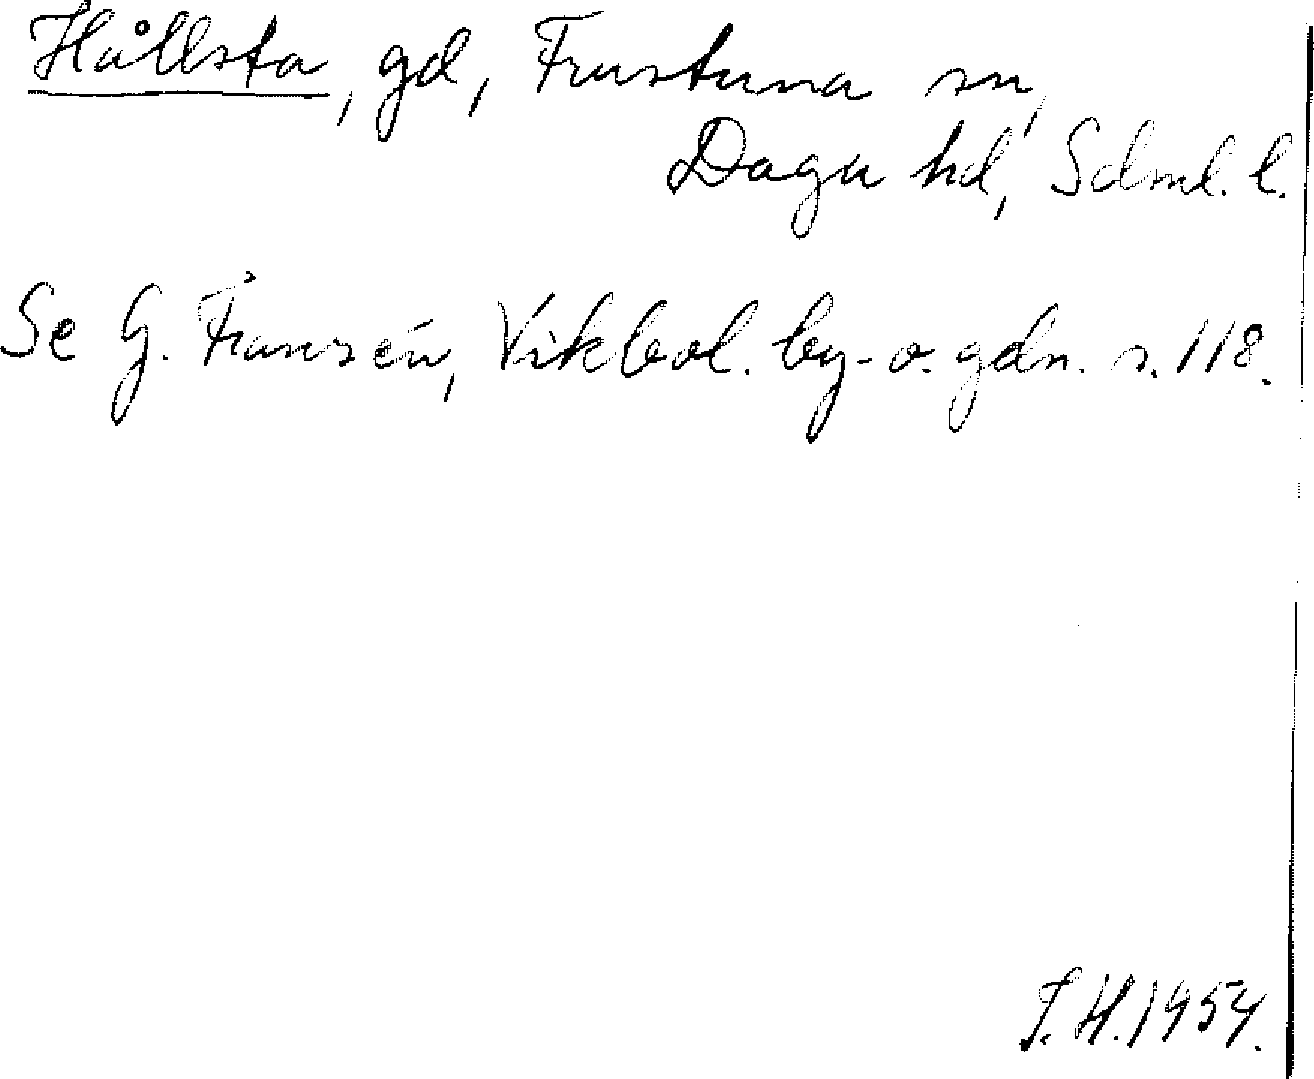 Hållsta, gd, Frustuna sn,
Daga hd, Sdml. l.
Se G. Franzén, Vikbol. by- o. gdn. s. 118.
I. H. 1954.